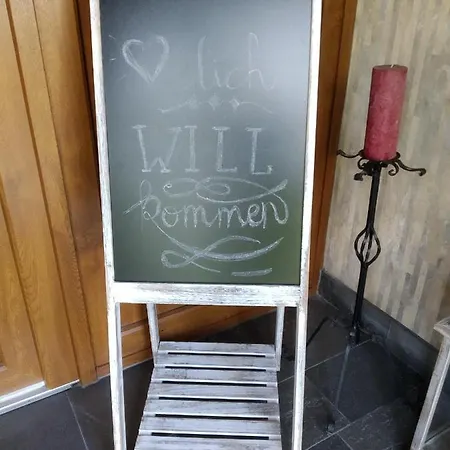 ♥lich
WILL
kommen